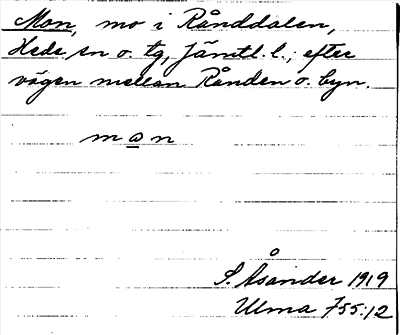 Mon, mo i Rånddalen,
Hede sn o. tg, Jämtl. l.; efter
vägen mellan Rånden o. byn.
man
S. Åsander 1919
Ulma 755:12